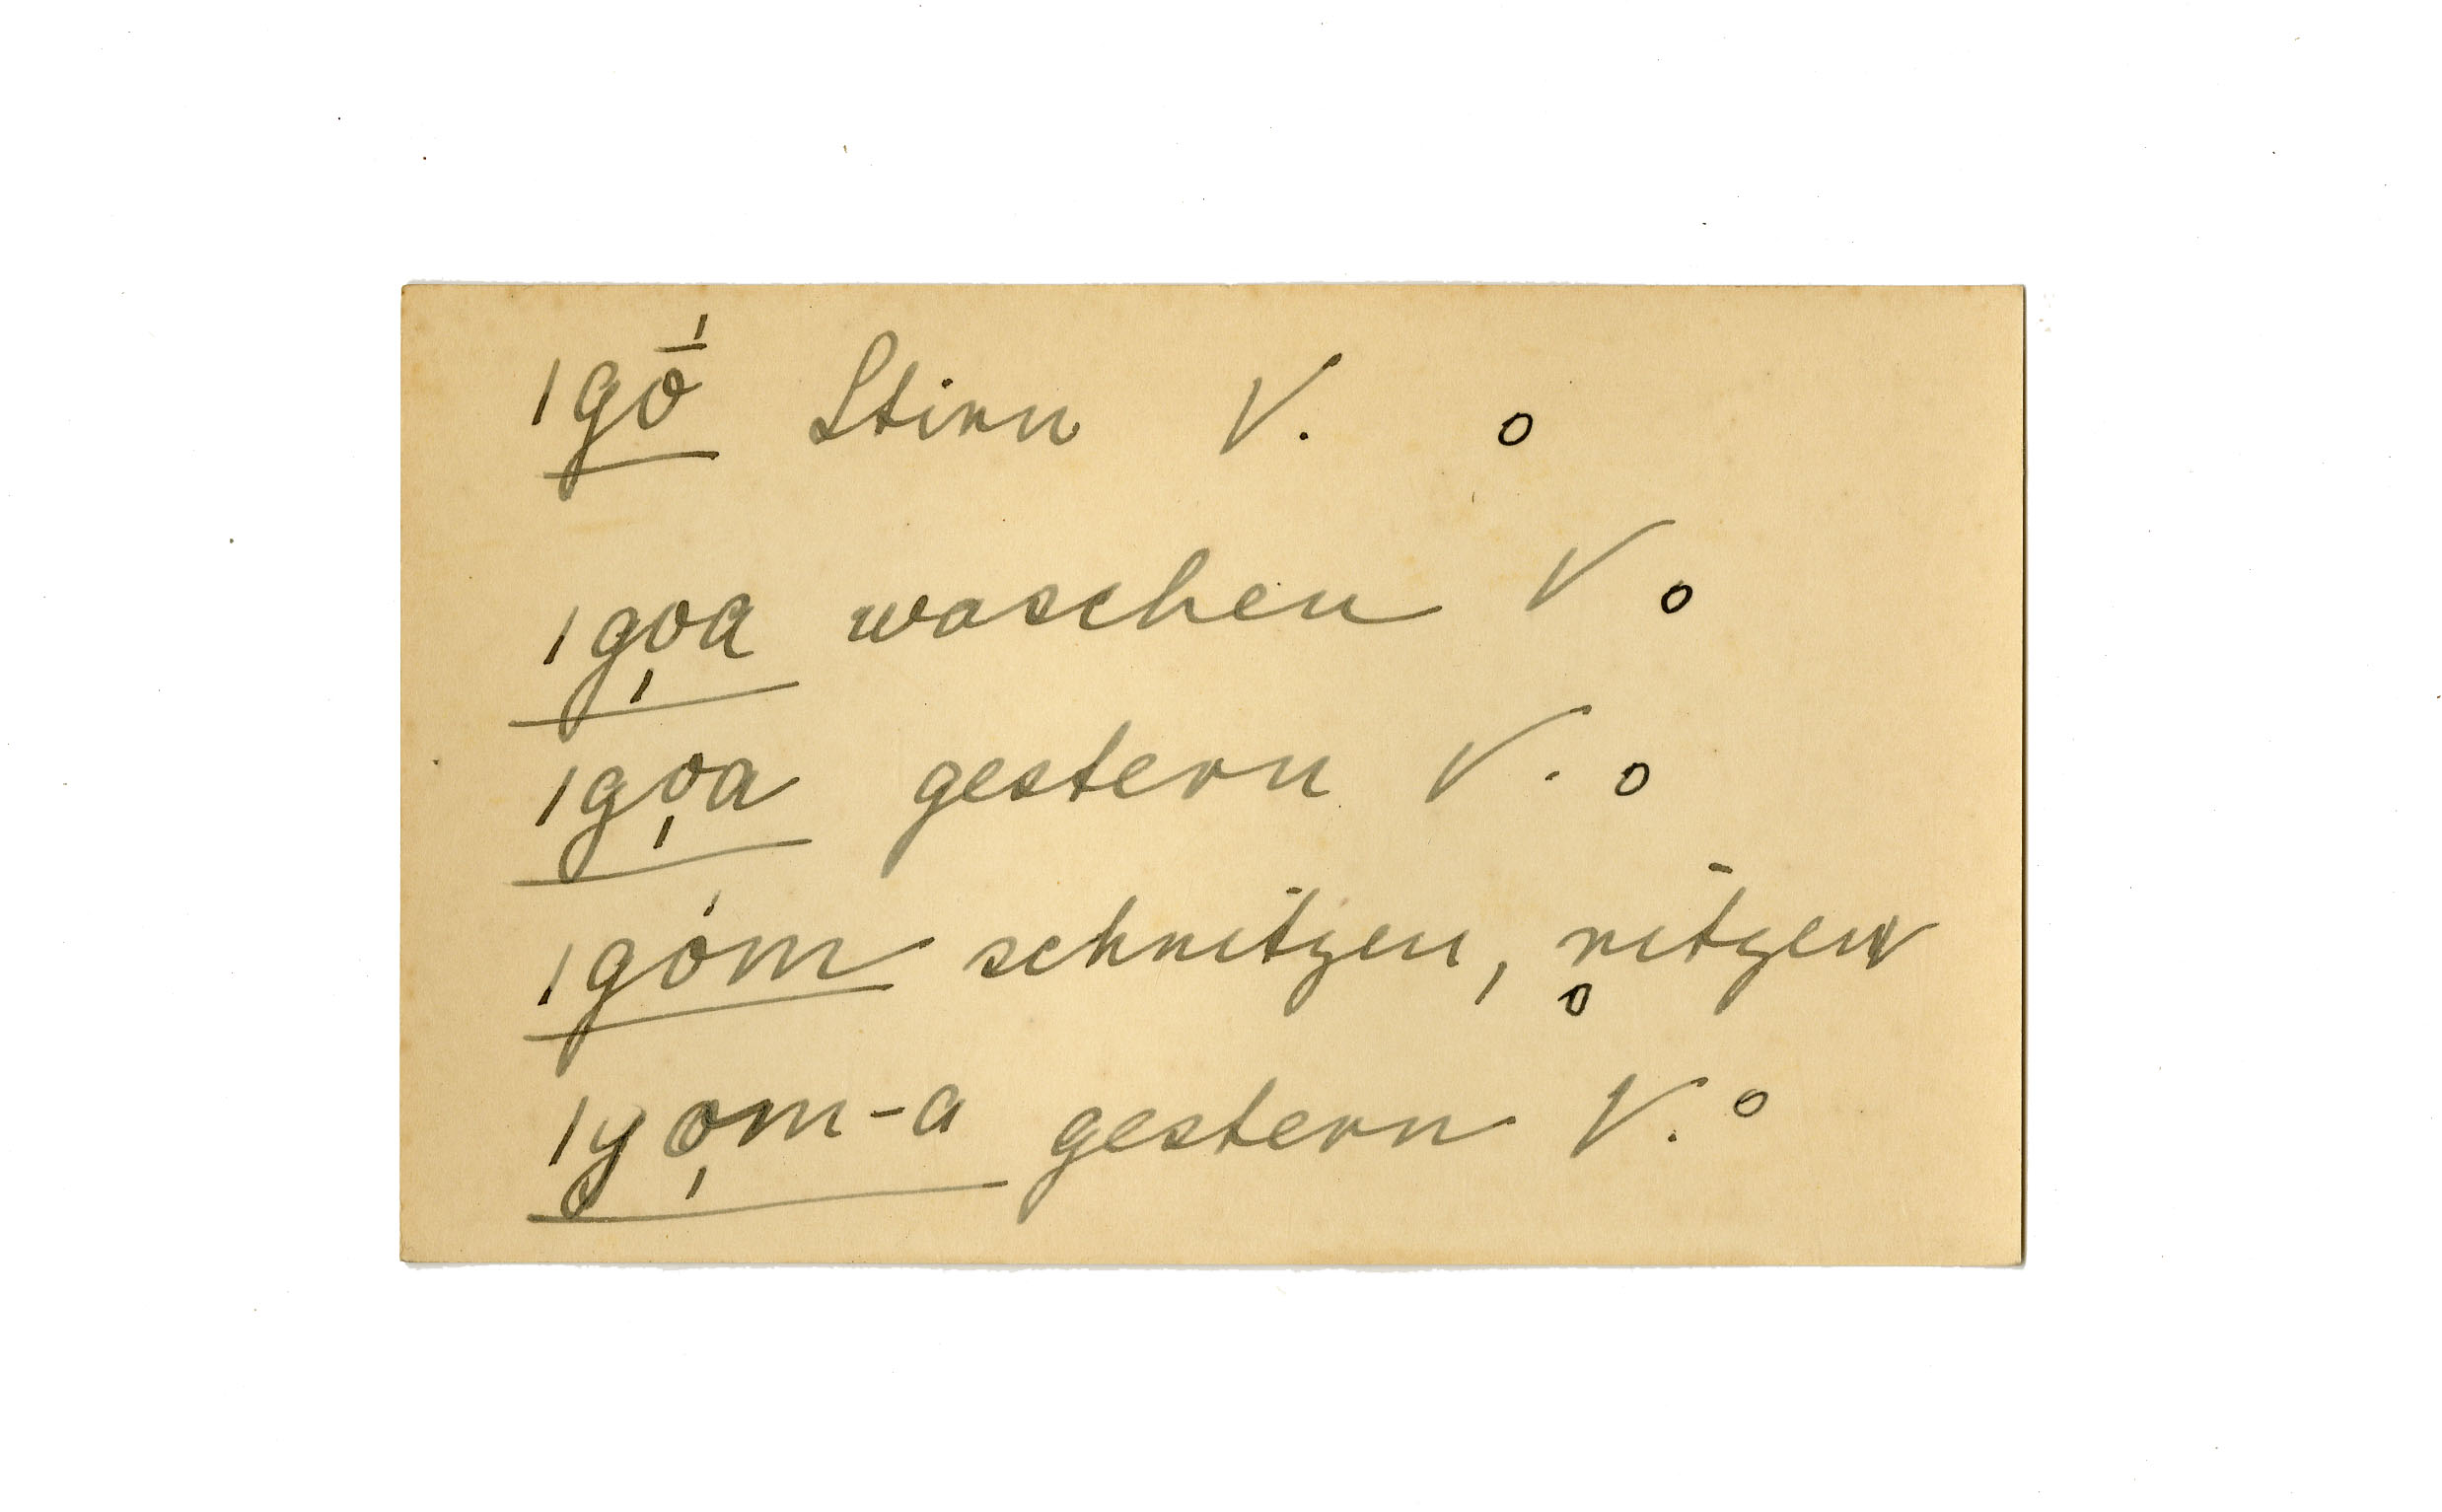 ǀgṓ Stirn V. o
ǀgo̩a waschen V o
ǀgo̩a gestern V. o
ǀgóm schnitzen, ritzen V o
ǀgo̩m-a gestern V. o